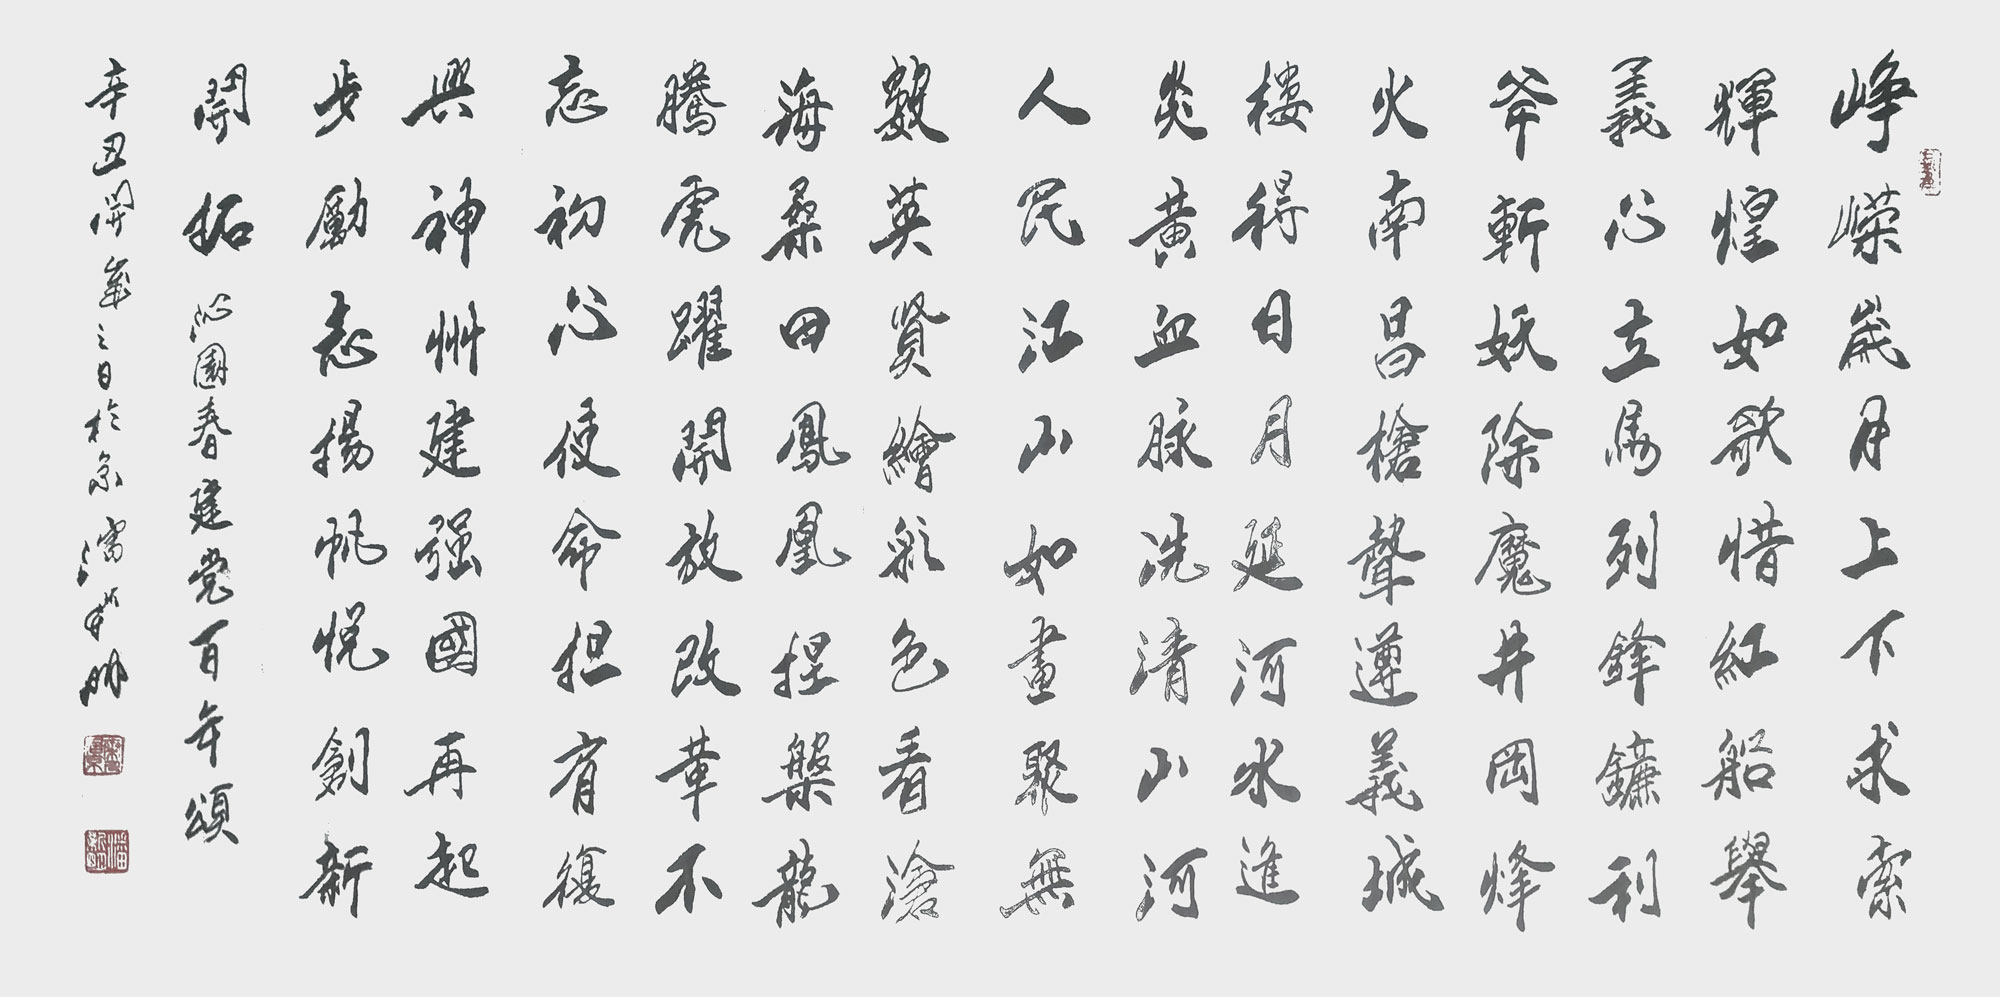 峥嵘歳月上下求索
輝煌如歌惜紅船舉
義心立馬列鋒鐮利
斧斬妖除魔井岡烽
火南昌槍聲遵義城
樓得日月延河水進
炎黄血脉洗清山河
人民江山如畫聚無
數英賢繪彩色看滄
海桑田鳳凰捏槃龍
騰虎躍開放改革不
忘初心使命担有復
興神州建强國再起
步勵志揚帆悦創新
開拓 沁園春建党百年頌
辛丑開歲之日於京 潘